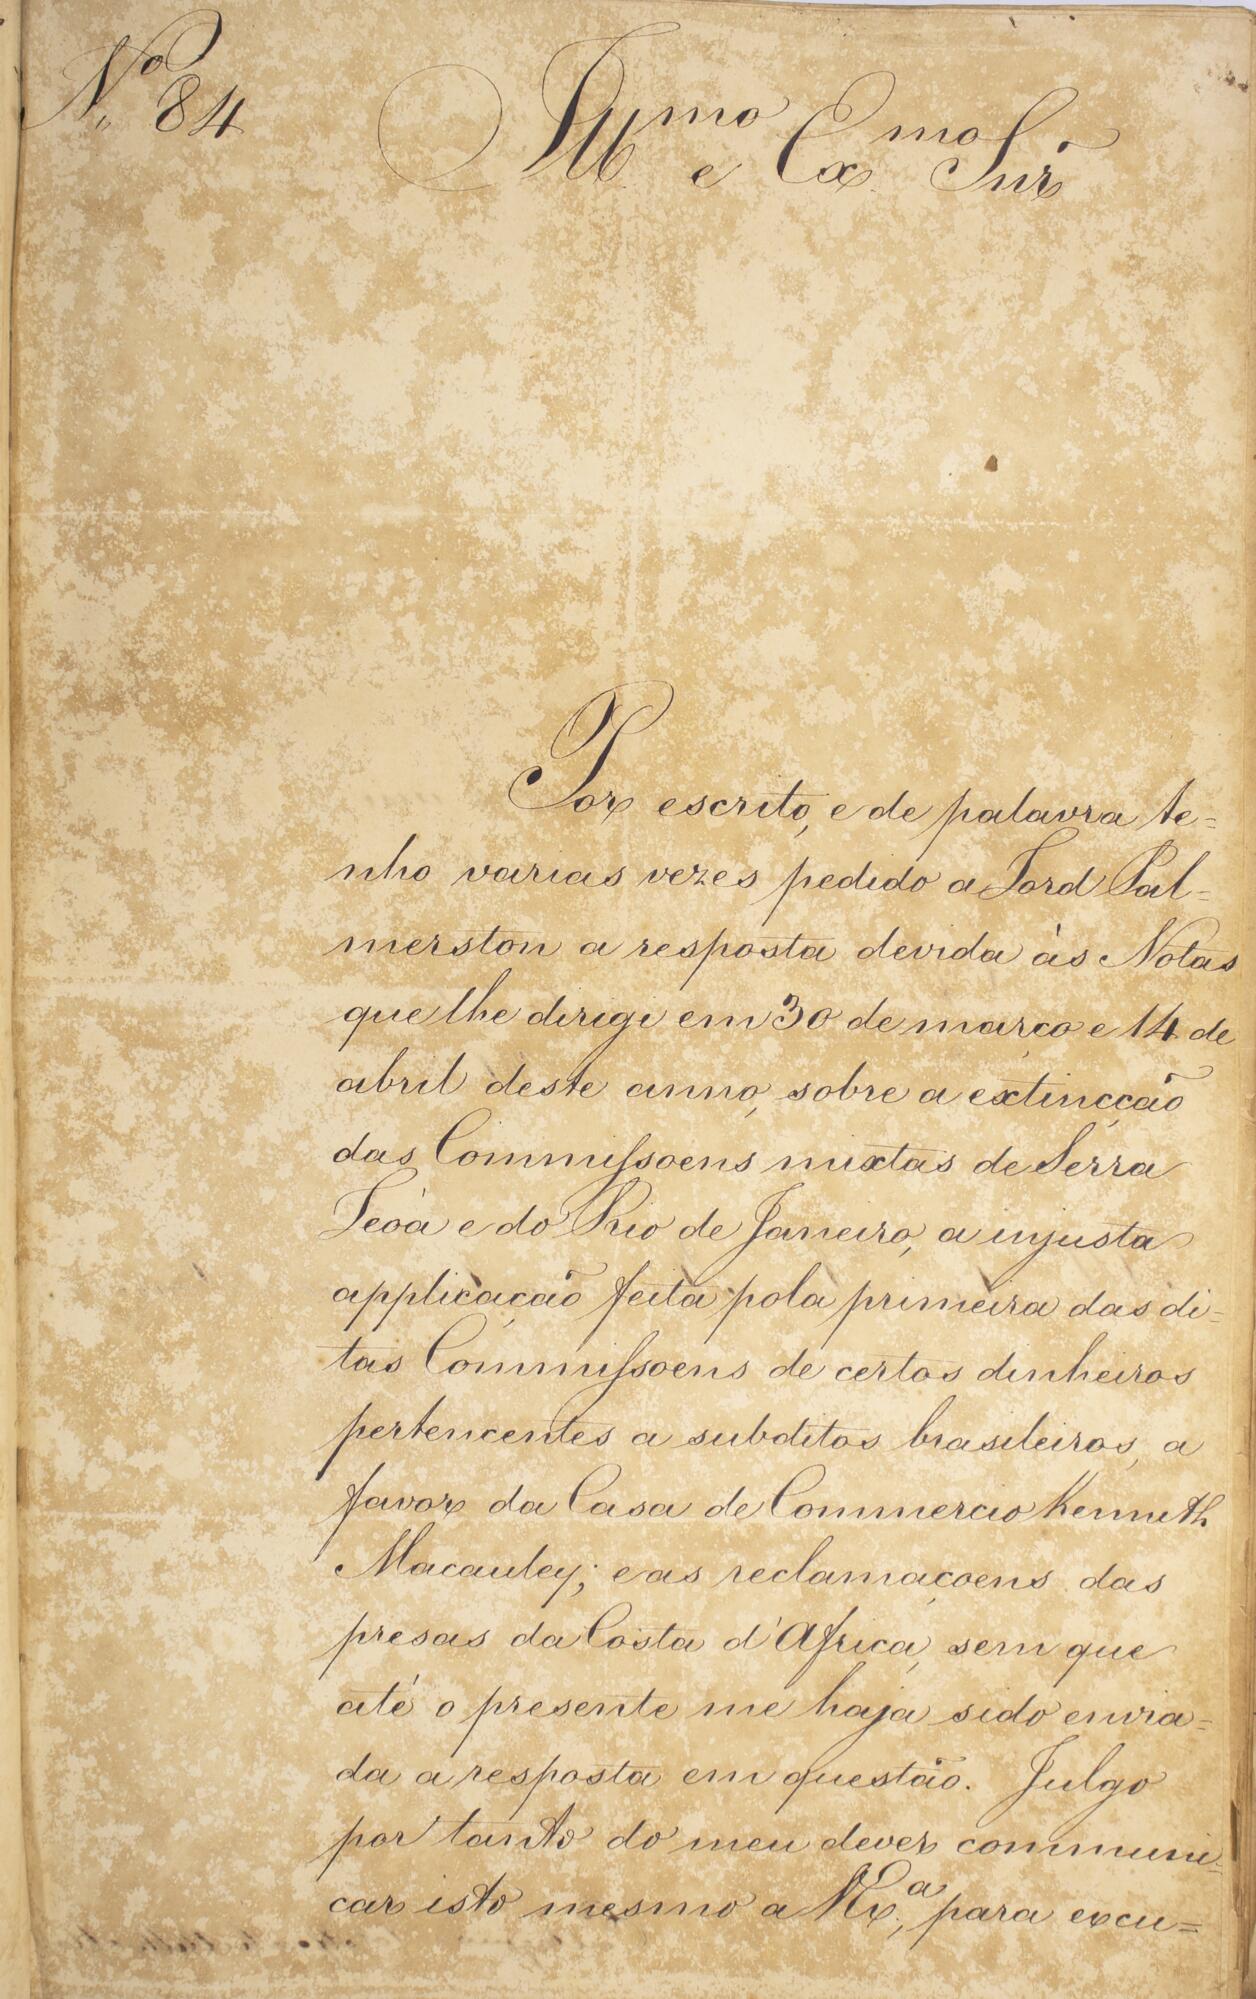 Nº 84
Illmo e Exmo Snr
Por escrito, e de palavra te=
nho varias vezes pedido a Lord Pal=
merston a resposta devida às Notas
que lhe dirigi em 30 de março e 14 de
abril deste anno, sobre a extincção
das Commissoens mixtas de Serra
Leòa e do Rio de Janeiro, a injusta
applicação feita pola primeira das di=
tas Commissoens de certos dinheiros
pertencentes a subditos brasileiros, a
favor da Casa de Commercio Kenneth
Macauley; e as reclamaçoens das
presas da Costa d'Africa, sem que
até o presente me haja sido envia=
da a resposta em questão. Julgo
por tanto do meu dever communi=
car isto mesmo a VExª, para excu=